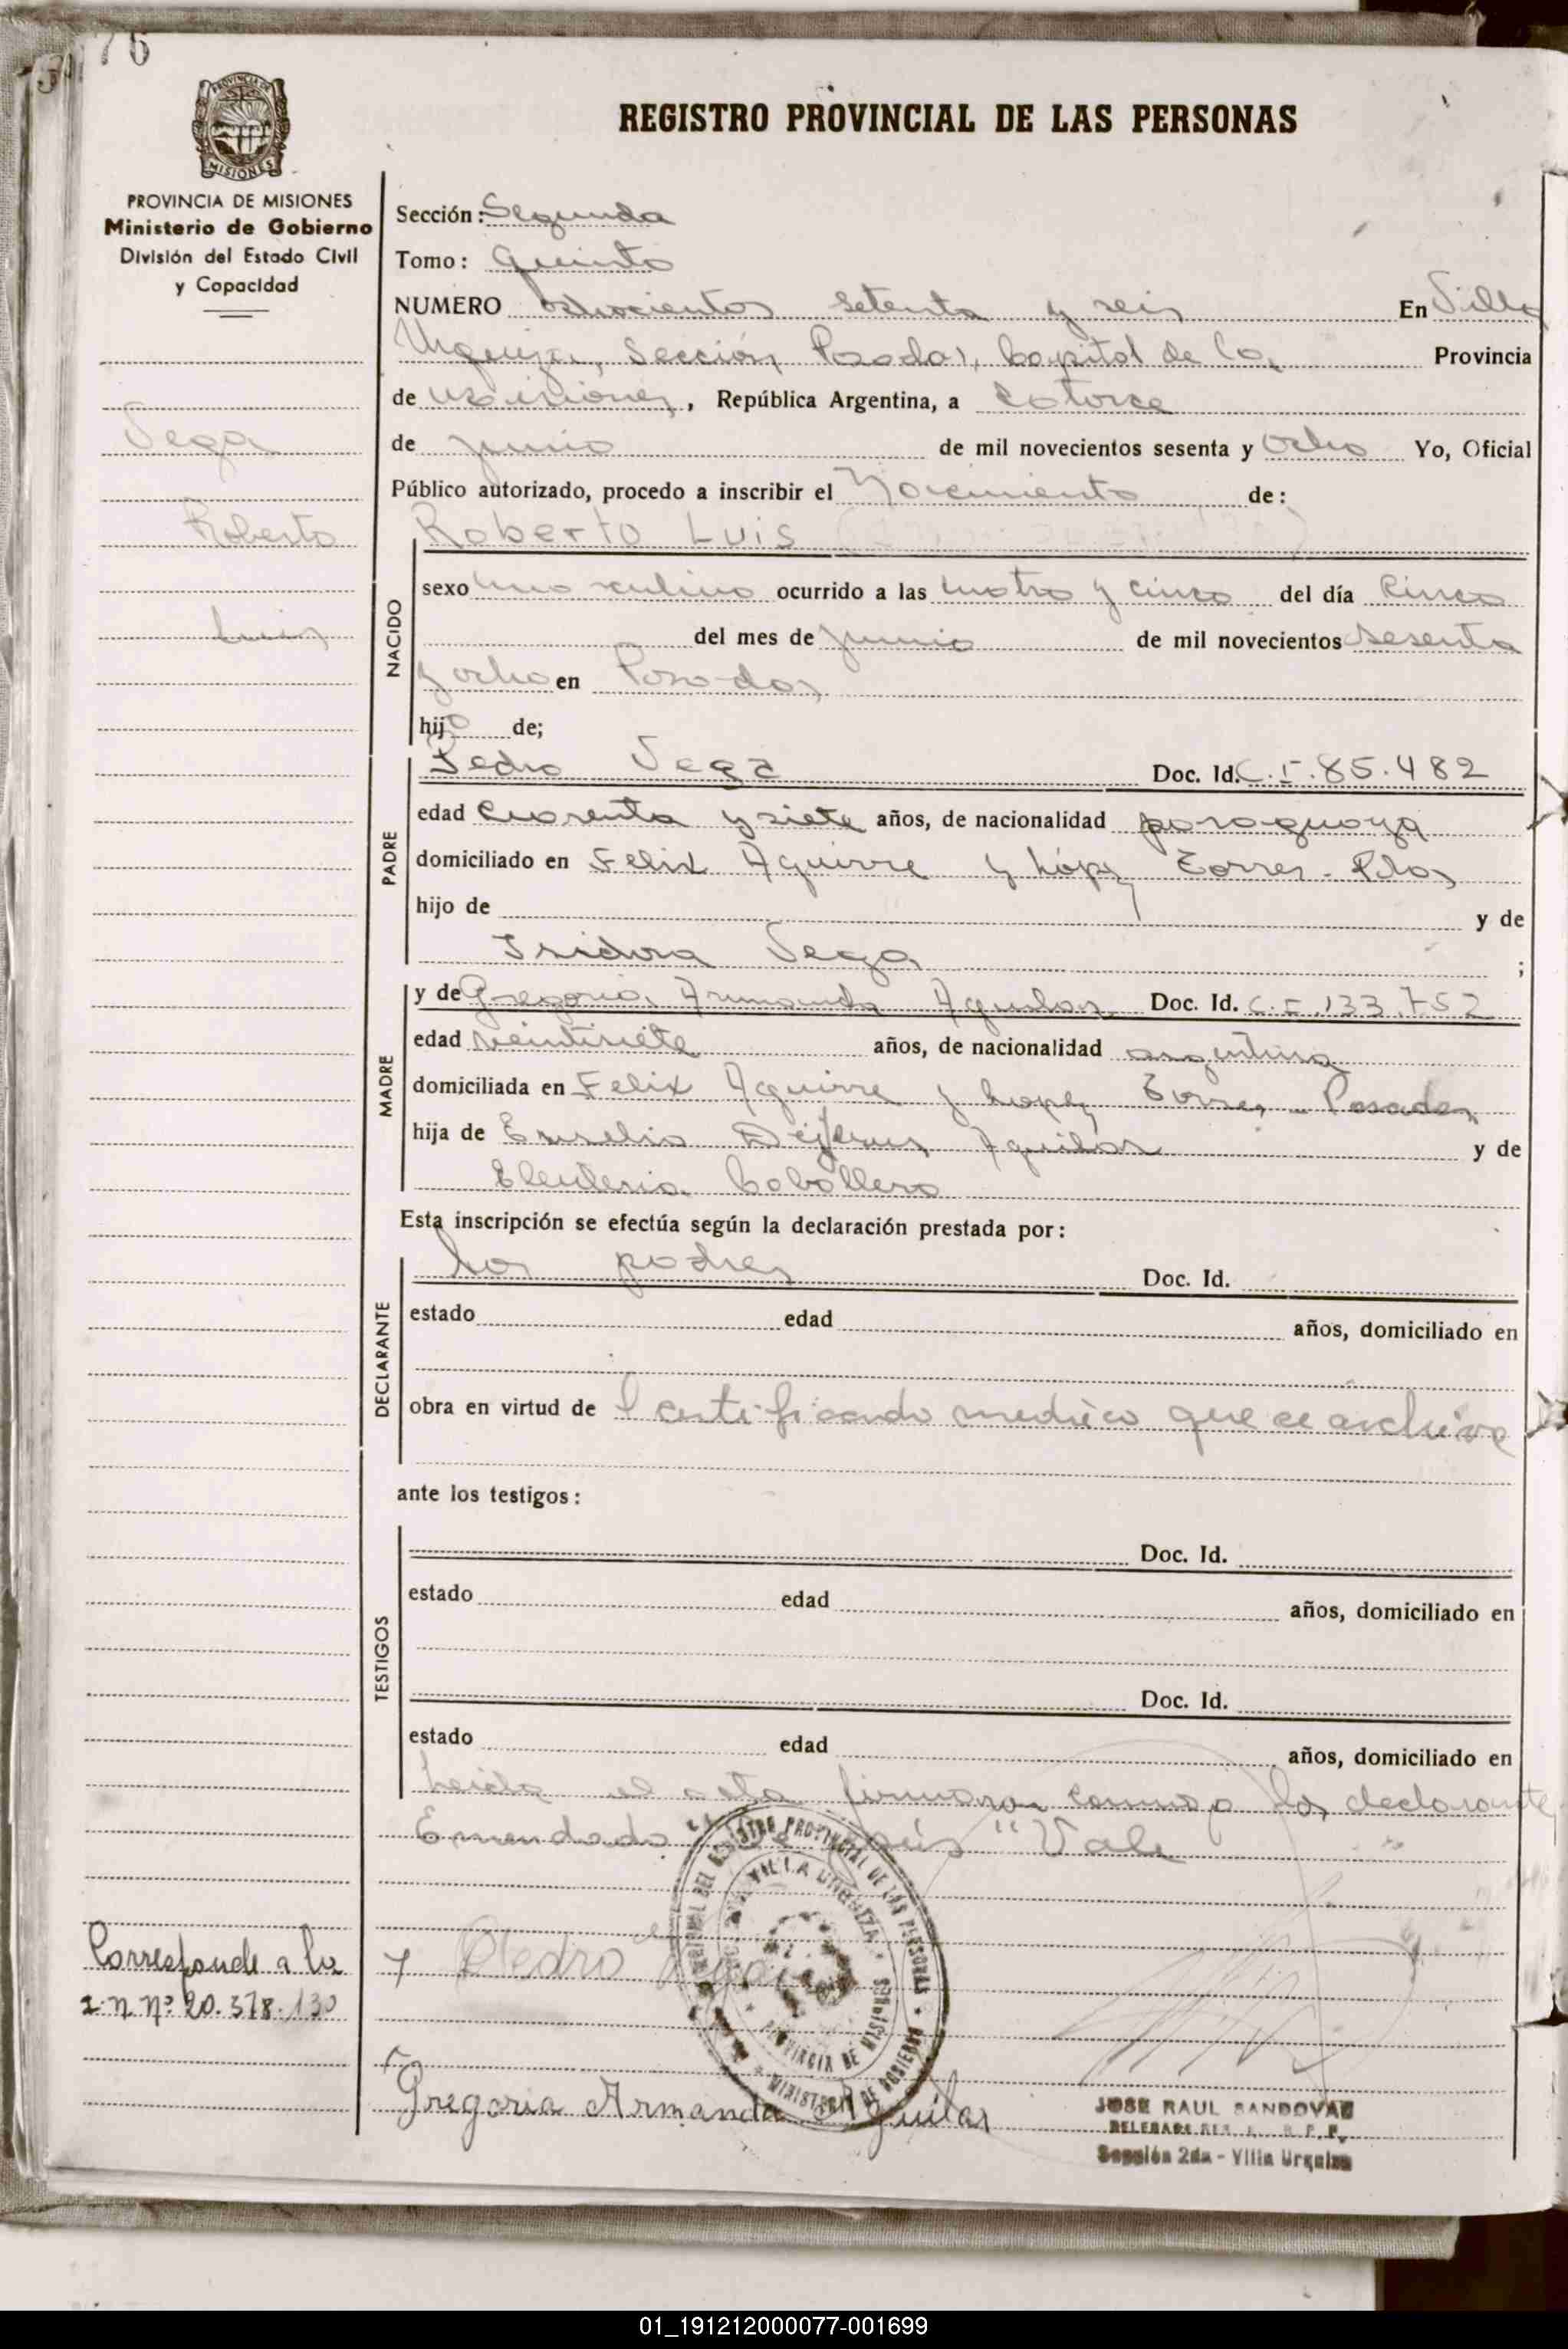 76
MISIONES
PROVINCIA DE MISIONES
Ministerio de Gobierno
División del Estado Civil
y Capacidad
Vega
Roberto
Luis
REGISTRO PROVINCIAL DE LAS PERSONAS
Sección: Segunda
Tomo: Quinto
NUMERO setenta y seis En Villa
Urquiza, Sección Posadas, Capital de la Provincia
de Misiones, República Argentina, a catorce
de junio de mil novecientos sesenta y ocho Yo, Oficial
Público autorizado, procedo a inscribir el Nacimiento de:
Roberto Luis
NACIDO
sexo masculino ocurrido a las cuatro y cinco del día cinco
del mes de junio de mil novecientos sesenta
y ocho en Posadas
hijo de;
PADRE
Pedro Vega Doc. Id. C.I. 85.482
edad cuarenta y siete años, de nacionalidad paraguaya
domiciliado en Felix Aguirre y López Torres - Pdas
hijo de y de
Isidora Vega ;
MADRE
y de Gregoria Armanda Aguilar Doc. Id. C.I. 133.752
edad veintisiete años, de nacionalidad argentina
domiciliada en Felix Aguirre y Lopez Torres - Posadas
hija de Aguilar y de
Eleuteria Caballero
Esta inscripción se efectúa según la declaración prestada por:
DECLARANTE
Los padres Doc. Id.
estado edad años, domiciliado en
obra en virtud de l certificando medico que se archiva
ante los testigos:
TESTIGOS
Doc. Id.
estado edad años, domiciliado en
Doc. Id.
estado edad años, domiciliado en
Leida el acta firmaron conmigo los declarante
Enmendado "Vale
REGISTRO PROVINCIAL DE LAS PERSONAS
VILLA URQUIZA
PROVINCIA DE MISIONES
MINISTERIO DE GOBIERNO
Pedro
Corresponde a la
Nº 20.378.130
Gregoria Armanda Aguilar
JOSE RAUL SANDOVAL
Sección 2da - Villa Urquiza
01_191212000077-001699